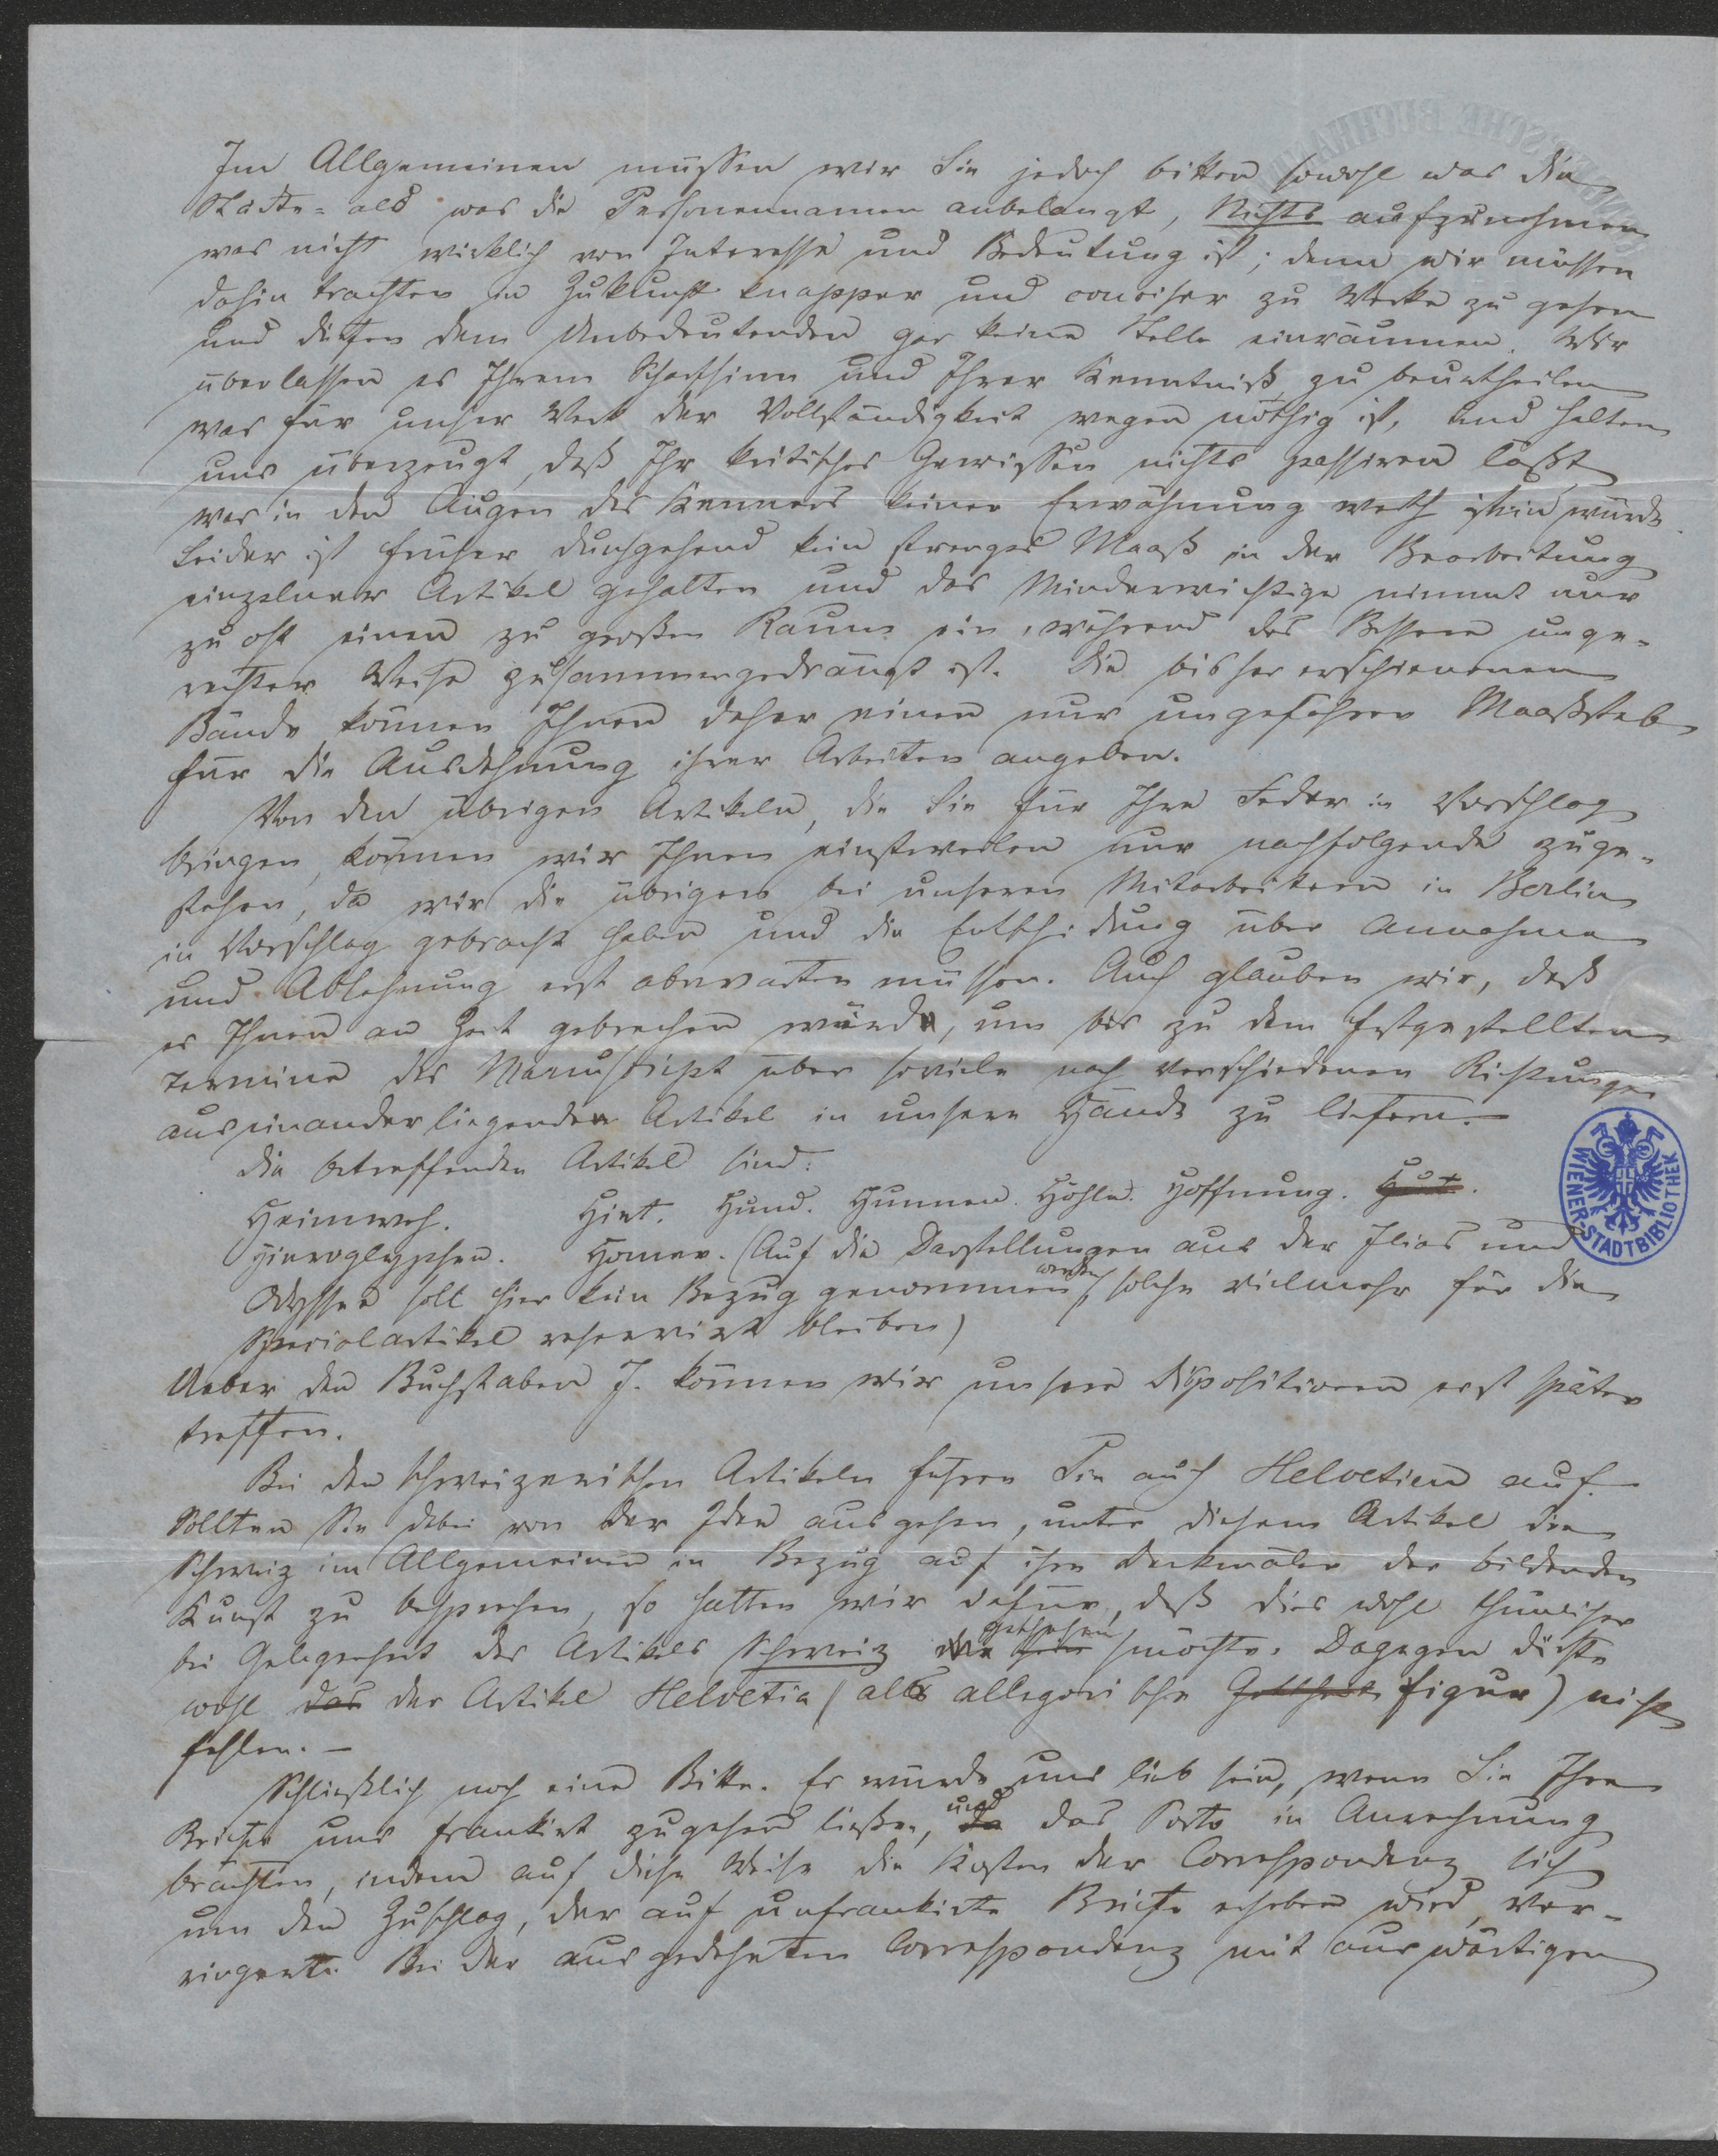 Im Allgemeinen müssen wir Sie jedoch bitten sowohl was die
Städte- als was die Personennamen anbelangt, Nichts aufzunehmen
was nicht wirklich von Interesse und Bedeutung ist; denn wir müssen
dahin trachten in Zukunft knapper und conciser zu Werke zu gehen
und dürfen dem Unbedeutenden gar keine Stelle einräumen. Wir
überlassen es Ihrem Scharfsinn und Ihrer Kenntniß zu beurtheilen
was für unser Werk der Vollständigkeit wegen nöthig ist, und halten
uns überzeugt, daß Ihr kritisches Gewissen nichts passiren läßt
was in den Augen des Kenners keiner Erwähnung werth sein würde.
Leider ist früher durchgehend kein strenges Maaß in der Bearbeitung
einzelner Artikel gehalten und das Minderwichtige nimmt nur
zu oft einen zu großen Raum ein, während das Bessere unge-
rechter Weise zusammengedrängt ist. Die bisher erschienenen
Bände können Ihnen daher einen nur ungefähren Maaßstab
für die Ausdehnung ihrer Arbeiten angeben.
Von den übrigen Artikeln, die Sie für Ihre Feder in Vorschlag
bringen, können wir Ihnen einstweilen nur nachfolgende zuge-
stehen, da wir die übrigen bei unseren Mitarbeitern in Berlin
in Vorschlag gebracht haben und die Entscheidung über Annahme
und Ablehnung erst abwarten müssen. Auch glauben wir, daß
es Ihnen an Zeit gebrechen würde, um bis zu dem festgestellten
Termine das Manuscript über soviele nach verschiedenen Richtungen
auseinanderliegenden Artikel in unsere Hände zu liefern.
Die betreffenden Artikel sind:
Heimweh. Hirt. Hund. Hunnen. Höhle. Hoffnung. Hut.
Hieroglyphen. Homer. (Auf die Darstellungen aus der Ilias und
Odyssee soll hier kein Bezug genommen werden, solche vielmehr für die
Specialartikel reservirt bleiben)
Ueber den Buchstaben J. können wir unsere Dispositionen erst später
treffen.
Bei den schweizerischen Artikeln führen Sie auch Helvetien auf.
Sollten Sie dabei von der Idee ausgehen, unter diesem Artikel die
Schweiz im Allgemeinen in Bezug auf ihre Denkmäler der bildenden
Kunst zu besprechen, so halten wir dafür, daß dies wohl thunlicher
bei Gelegenheit des Artikels Schweiz geschehen möchte. Dagegen dürfte
wohl das der Artikel Helvetia (als allegorische Gottheit Figur) nicht
fehlen. –
Schließlich noch eine Bitte. Es würde uns lieb sein, wenn Sie Ihre
Briefe uns frankirt zugehen ließen, und das Porto in Anrechnung
brächten, indem auf diese Weise die Kosten der Correspondenz sich
um den Zuschlag, der auf unfrankirte Briefe erhoben wird, ver-
ringert. Bei der ausgedehnten Correspondenz mit auswärtigen
WIENER-STADTBIBLIOTHEK